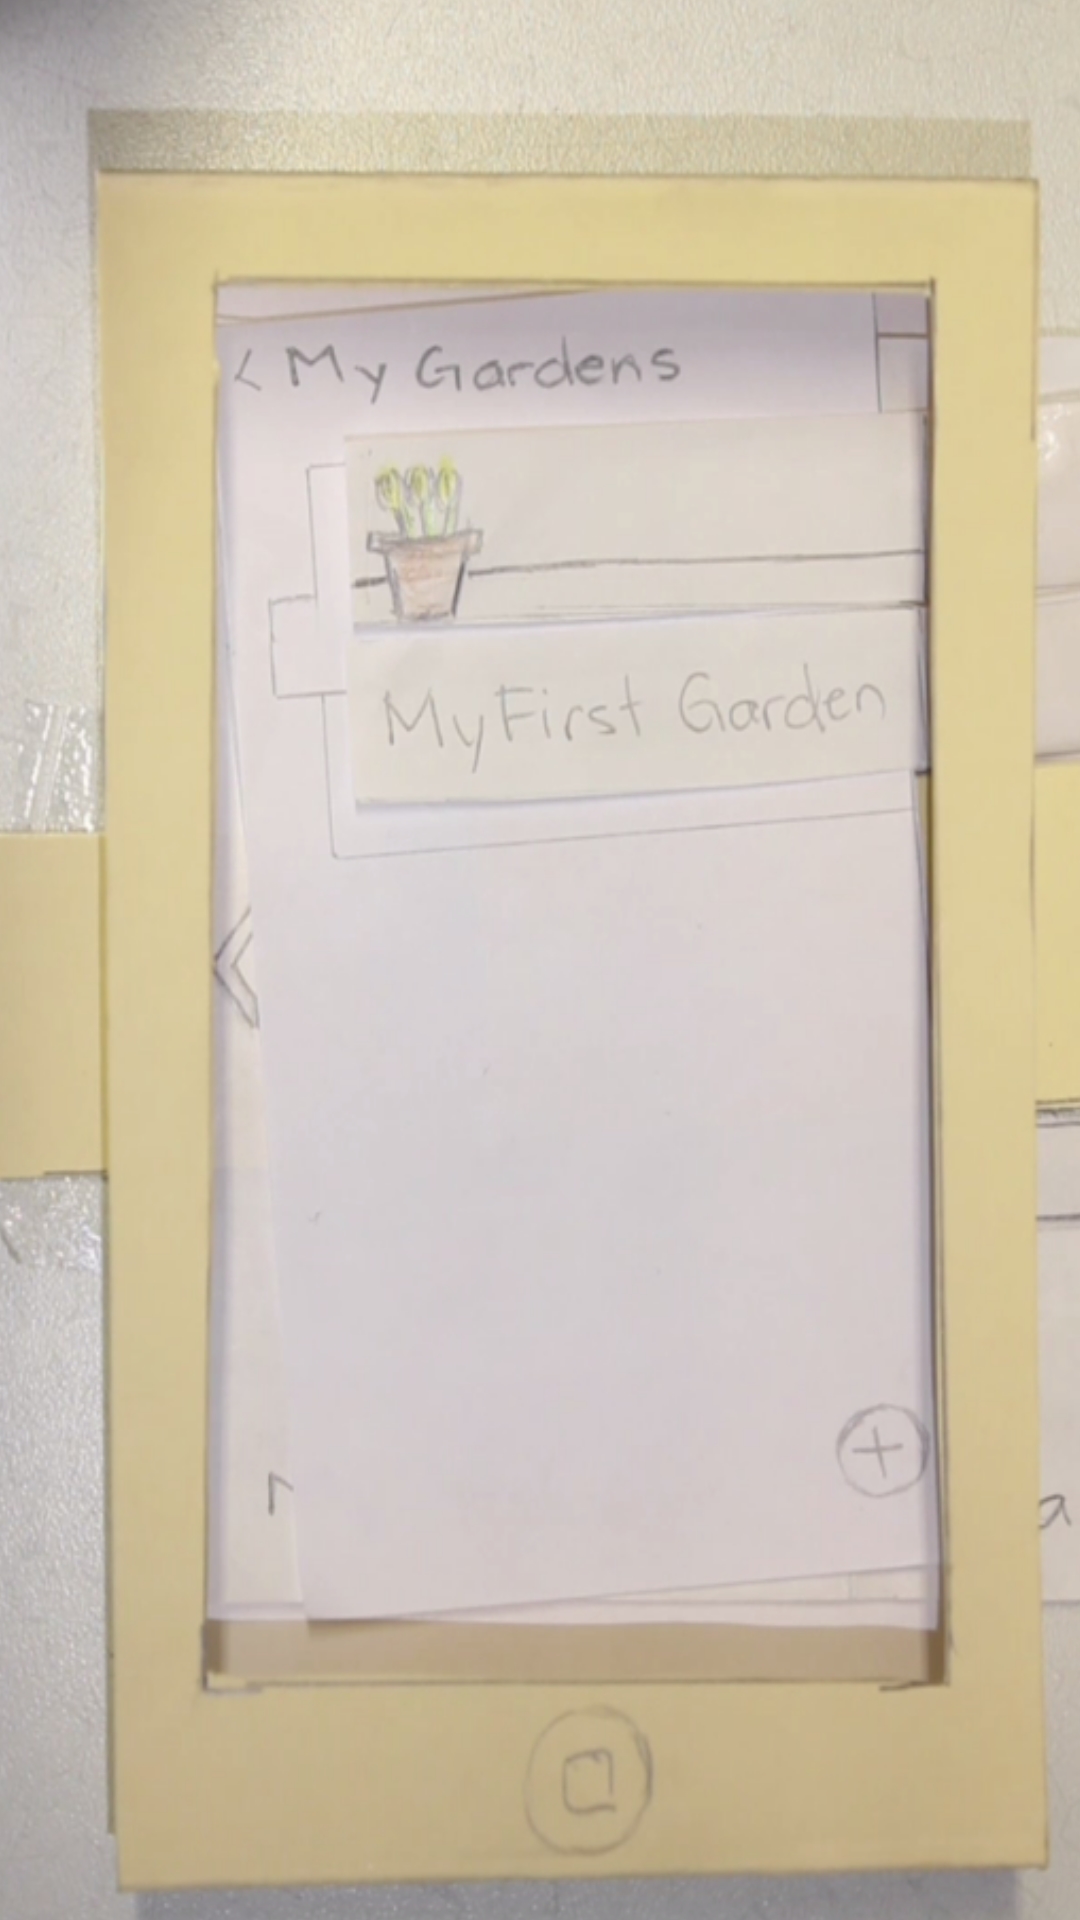 < My Gardens
My First Garden
+
a